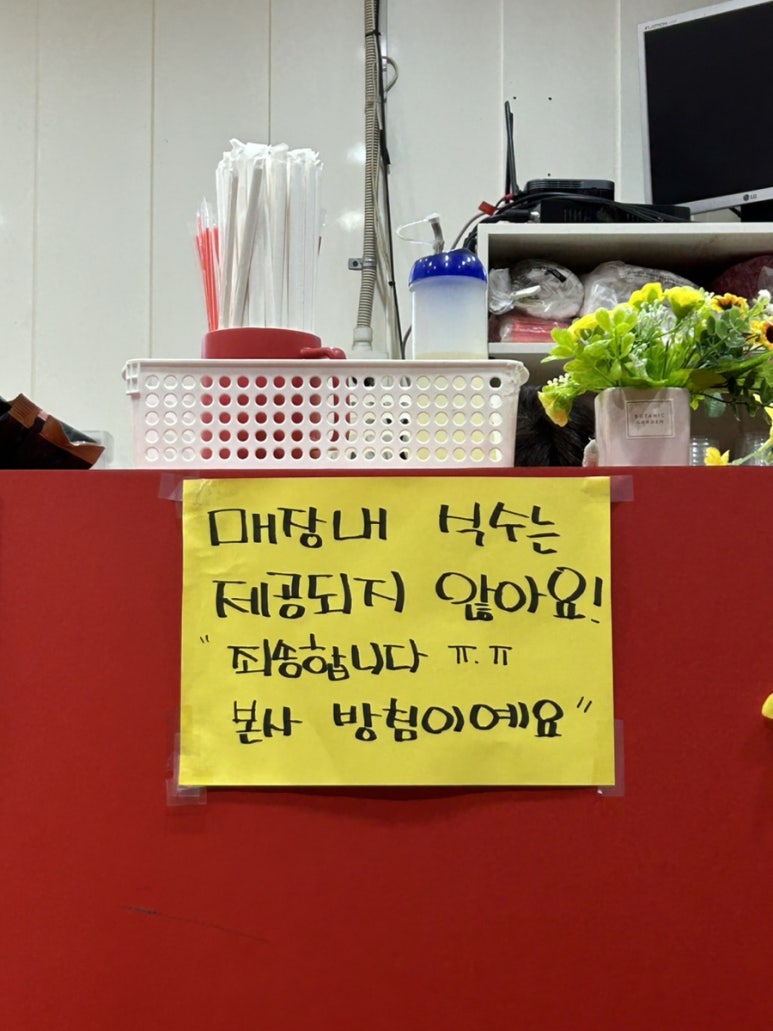 FLATRON
LG
BOTANIC
GARDEN
매장내 식수는
제공되지 않아요!
"죄송합니다 ㅠ.ㅠ
본사 방침이예요"